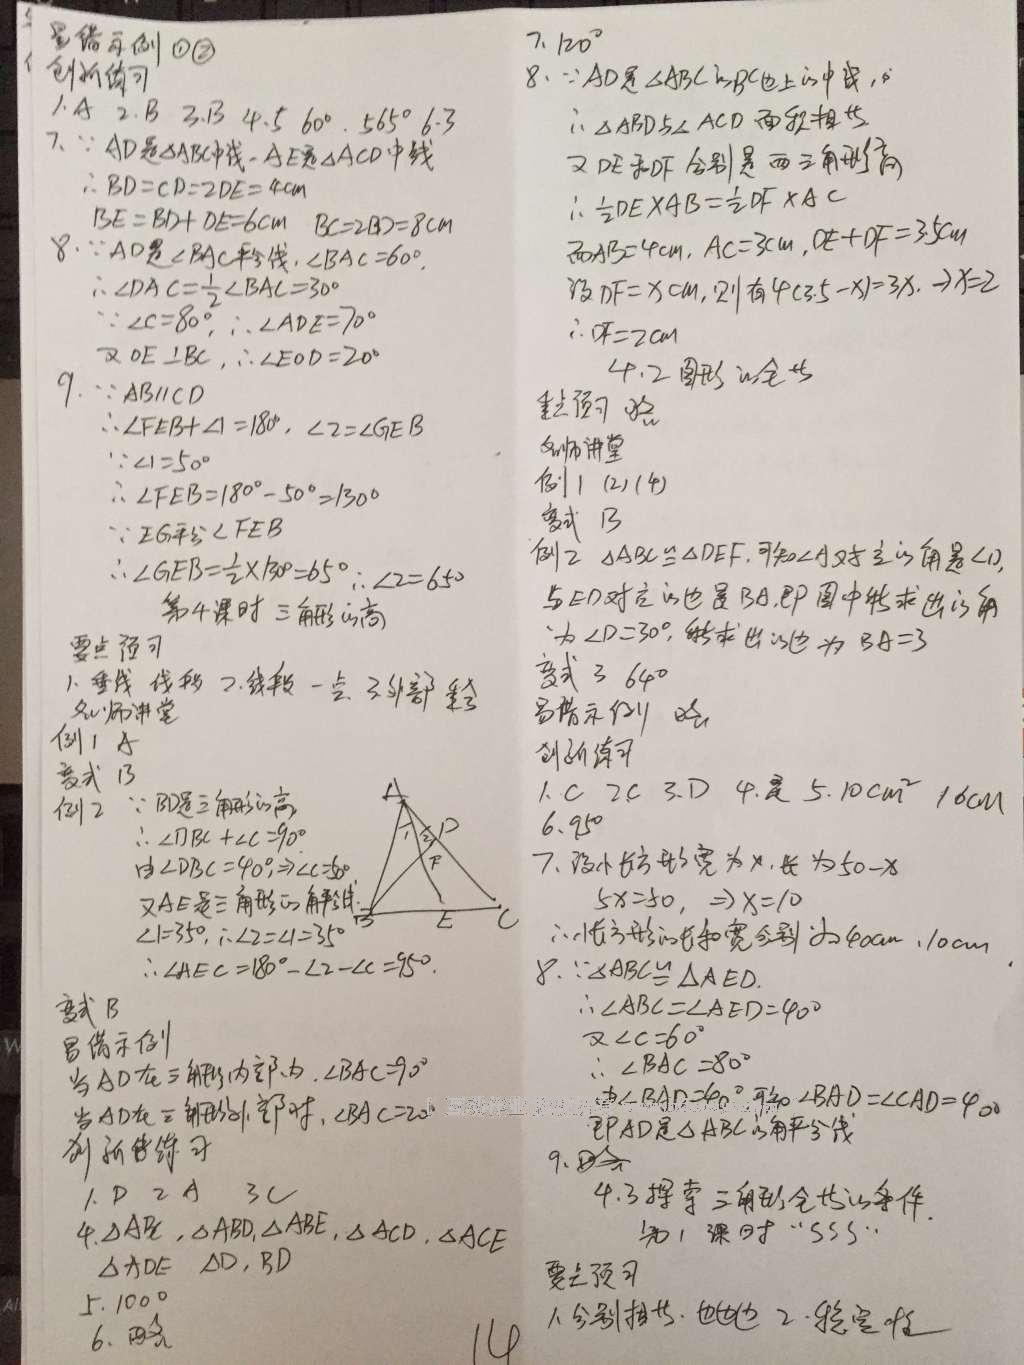 易错示例 ①②
创新练习
1.A 2.B 3.B 4.5 60° . 5 65° 6.3
7. ∵ AD是△ABC中线,AE是△ACD中线
∴BD=CD=2DE=4cm
BE=BD+DE=6cm BC=2BD=8cm
8. ∵AD是∠BAC平分线,∠BAC=60°.
∴∠DAC=1/2∠BAC=30°
∵∠C=80°, ∴∠ADE=70°
又DE⊥BC, ∴∠EOD=20°
9. ∵AB∥CD
∴∠FEB+∠1=180°, ∠2=∠GEB
∵∠1=50°
∴∠FEB=180°-50°=130°
∵EG平分∠FEB
∴∠GEB=1/2×130°=65° ∴∠2=65°
第4课时 三角形的高
要点预习
1.垂线 线段 2.线段 一点 3.外部
名师讲堂
例1 A
变式 B
例2 ∵BD是三角形的高
∴∠DBC+∠C=90°
由∠DBC=40°,⇒∠C=50°
又AE是三角形的角平分线
∠1=35°,∴∠2=∠1=35°
∴∠AEC=180°-∠2-∠C=95°.
A
1 2 D
F
B E C
变式 B
易错示例
当AD在三角形内部时,∠BAC=90°
当AD在三角形外部时,∠BAC=20°
创新练习
1.D 2 A 3 C
4.△ABC,△ABD,△ABE,△ACD,△ACE
△ADE AD,BD
5.100°
6.略
14
7. 120°
8. ∵AD是△ABC的BC边上的中线,
∴△ABD与△ACD面积相等
又DE和DF分别是两三角形高
∴1/2DE×AB=1/2DF×AC
而AB=4cm, AC=3cm, DE+DF=3.5cm
设DF=xcm,则有4(3.5-x)=3x.⇒x=2
∴DF=2cm
4.2 图形的全等
要点预习 略
名师讲堂
例1 (2)(4)
变式 B
例2 △ABC≌△DEF.可知∠A对应的角是∠D,
与ED对应的边是BA.即图中能求出的角
为∠D=30°,能求出的边为BA=3
变式 3 64°
易错示例 略
创新练习
1.C 2.C 3.D 4.是 5.10cm² 16cm
6.95°
7.设小长方形宽为x.长为50-x
5x=50, ⇒x=10
∴小长方形的长和宽分别为40cm、10cm
8.∵△ABC≌△AED.
∴∠ABC=∠AED=40°
又∠C=60°
∴∠BAC=80°
由∠BAD=40°.可知∠BAD=∠CAD=40°
即AD是△ABC的角平分线
9.略
4.3 探索三角形全等的条件.
第1课时 "SSS"
要点预习
1.分别相等.边边边 2.稳定性